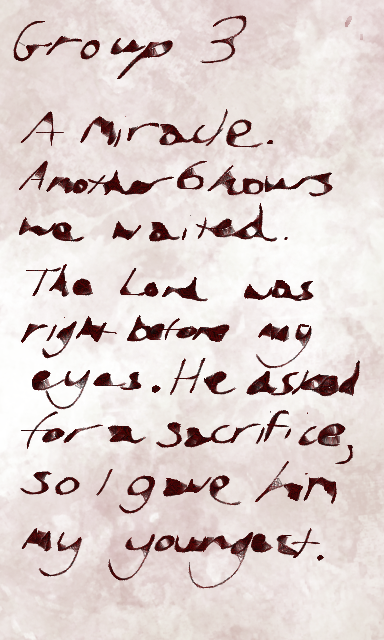 Group 3
A Miracle.
Another 6 hours
we waited.
The Lord was
right before my
eyes. He asked
for a sacrifice,
so I gave him
my youngest.